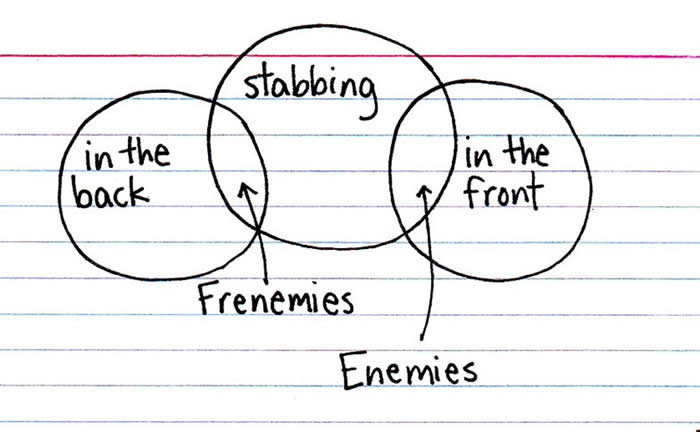 stabbing
in the
back
in the
front
Frenemies
Enemies